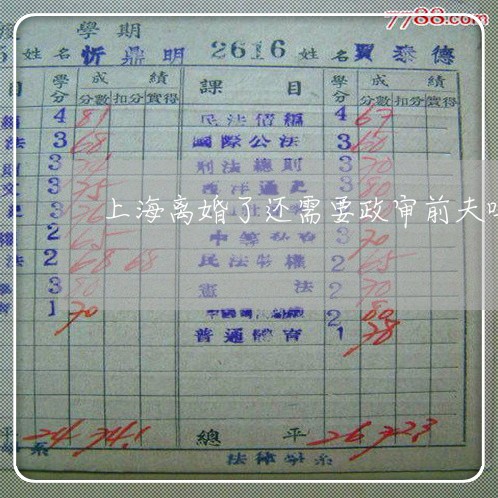 7788.com
學期
姓名 忻鼎明 2616 姓名 賈泰德
目 學分 成績 課目 學分 成績
分數 扣分 實得 分數 扣分 實得
4 81 民法債編 4 67
法 3 68 國際公法 3 60
3 刑法總則 3 70
3 75 西洋通史 3 80
上海离婚了还需要政审前夫吗
2 65 3 70
法 2 68 68 民法物權 2 65
3 80 憲法 2 70
1 70 2 80
普通體育 1 78
平 24 74.1 總平 26 72.3
系 法律學系